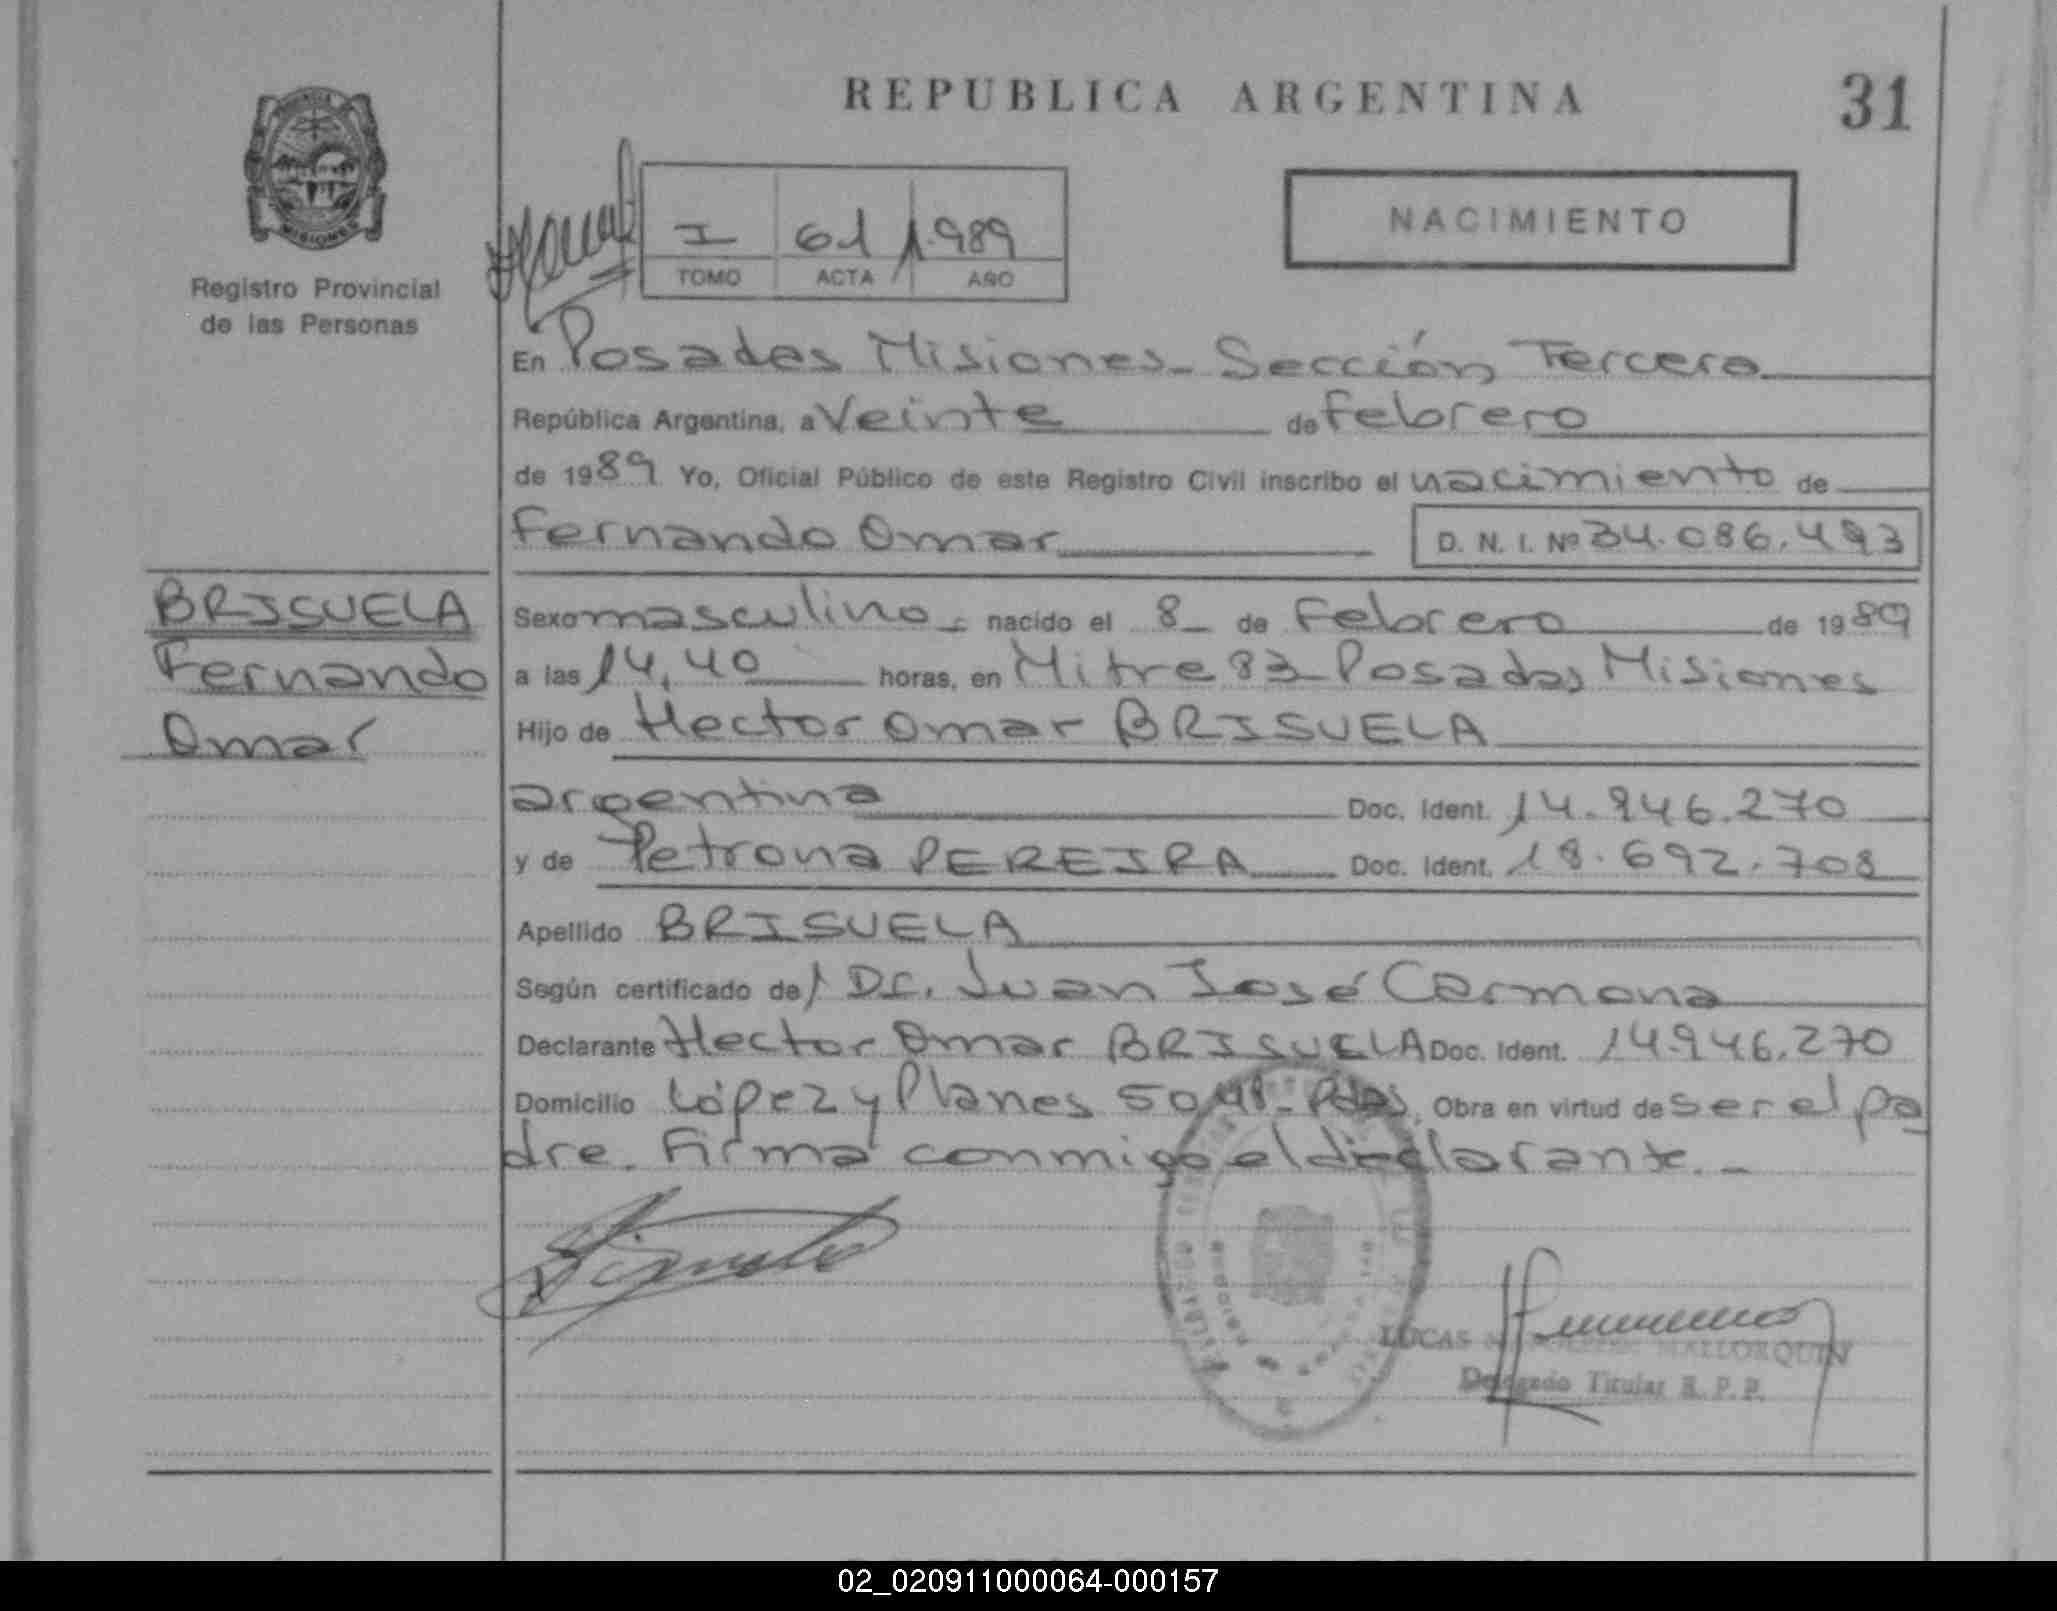 REPUBLICA ARGENTINA
31
MISIONES
Registro Provincial
de las Personas
I 61 1.989
TOMO ACTA AÑO
NACIMIENTO
En Posadas Misiones - Sección Tercera
República Argentina, a Veinte de febrero
de 1989 Yo, Oficial Público de este Registro Civil inscribo el nacimiento de
Fernando Omar D. N. I. Nº 34.086.493
BRISUELA
Fernando
Omar
Sexo masculino nacido el 8 de Febrero de 1989
a las 14,40 horas, en Mitre 83 Posadas Misiones
Hijo de Hector Omar BRISUELA
argentina Doc. Ident. 14.946.270
y de Petrona PEREIRA Doc. Ident. 18.692.708
Apellido BRISUELA
Según certificado de/ Dr. Juan José Carmona
Declarante Hector Omar BRISUELA Doc. Ident. 14.946.270
Domicilio López y Planes Pdas, Obra en virtud de ser el pa
dre. Firma conmigo el declarante. -
LUCAS MALLORQUIN
Delegado Titular R. P. P.
02_020911000064-000157